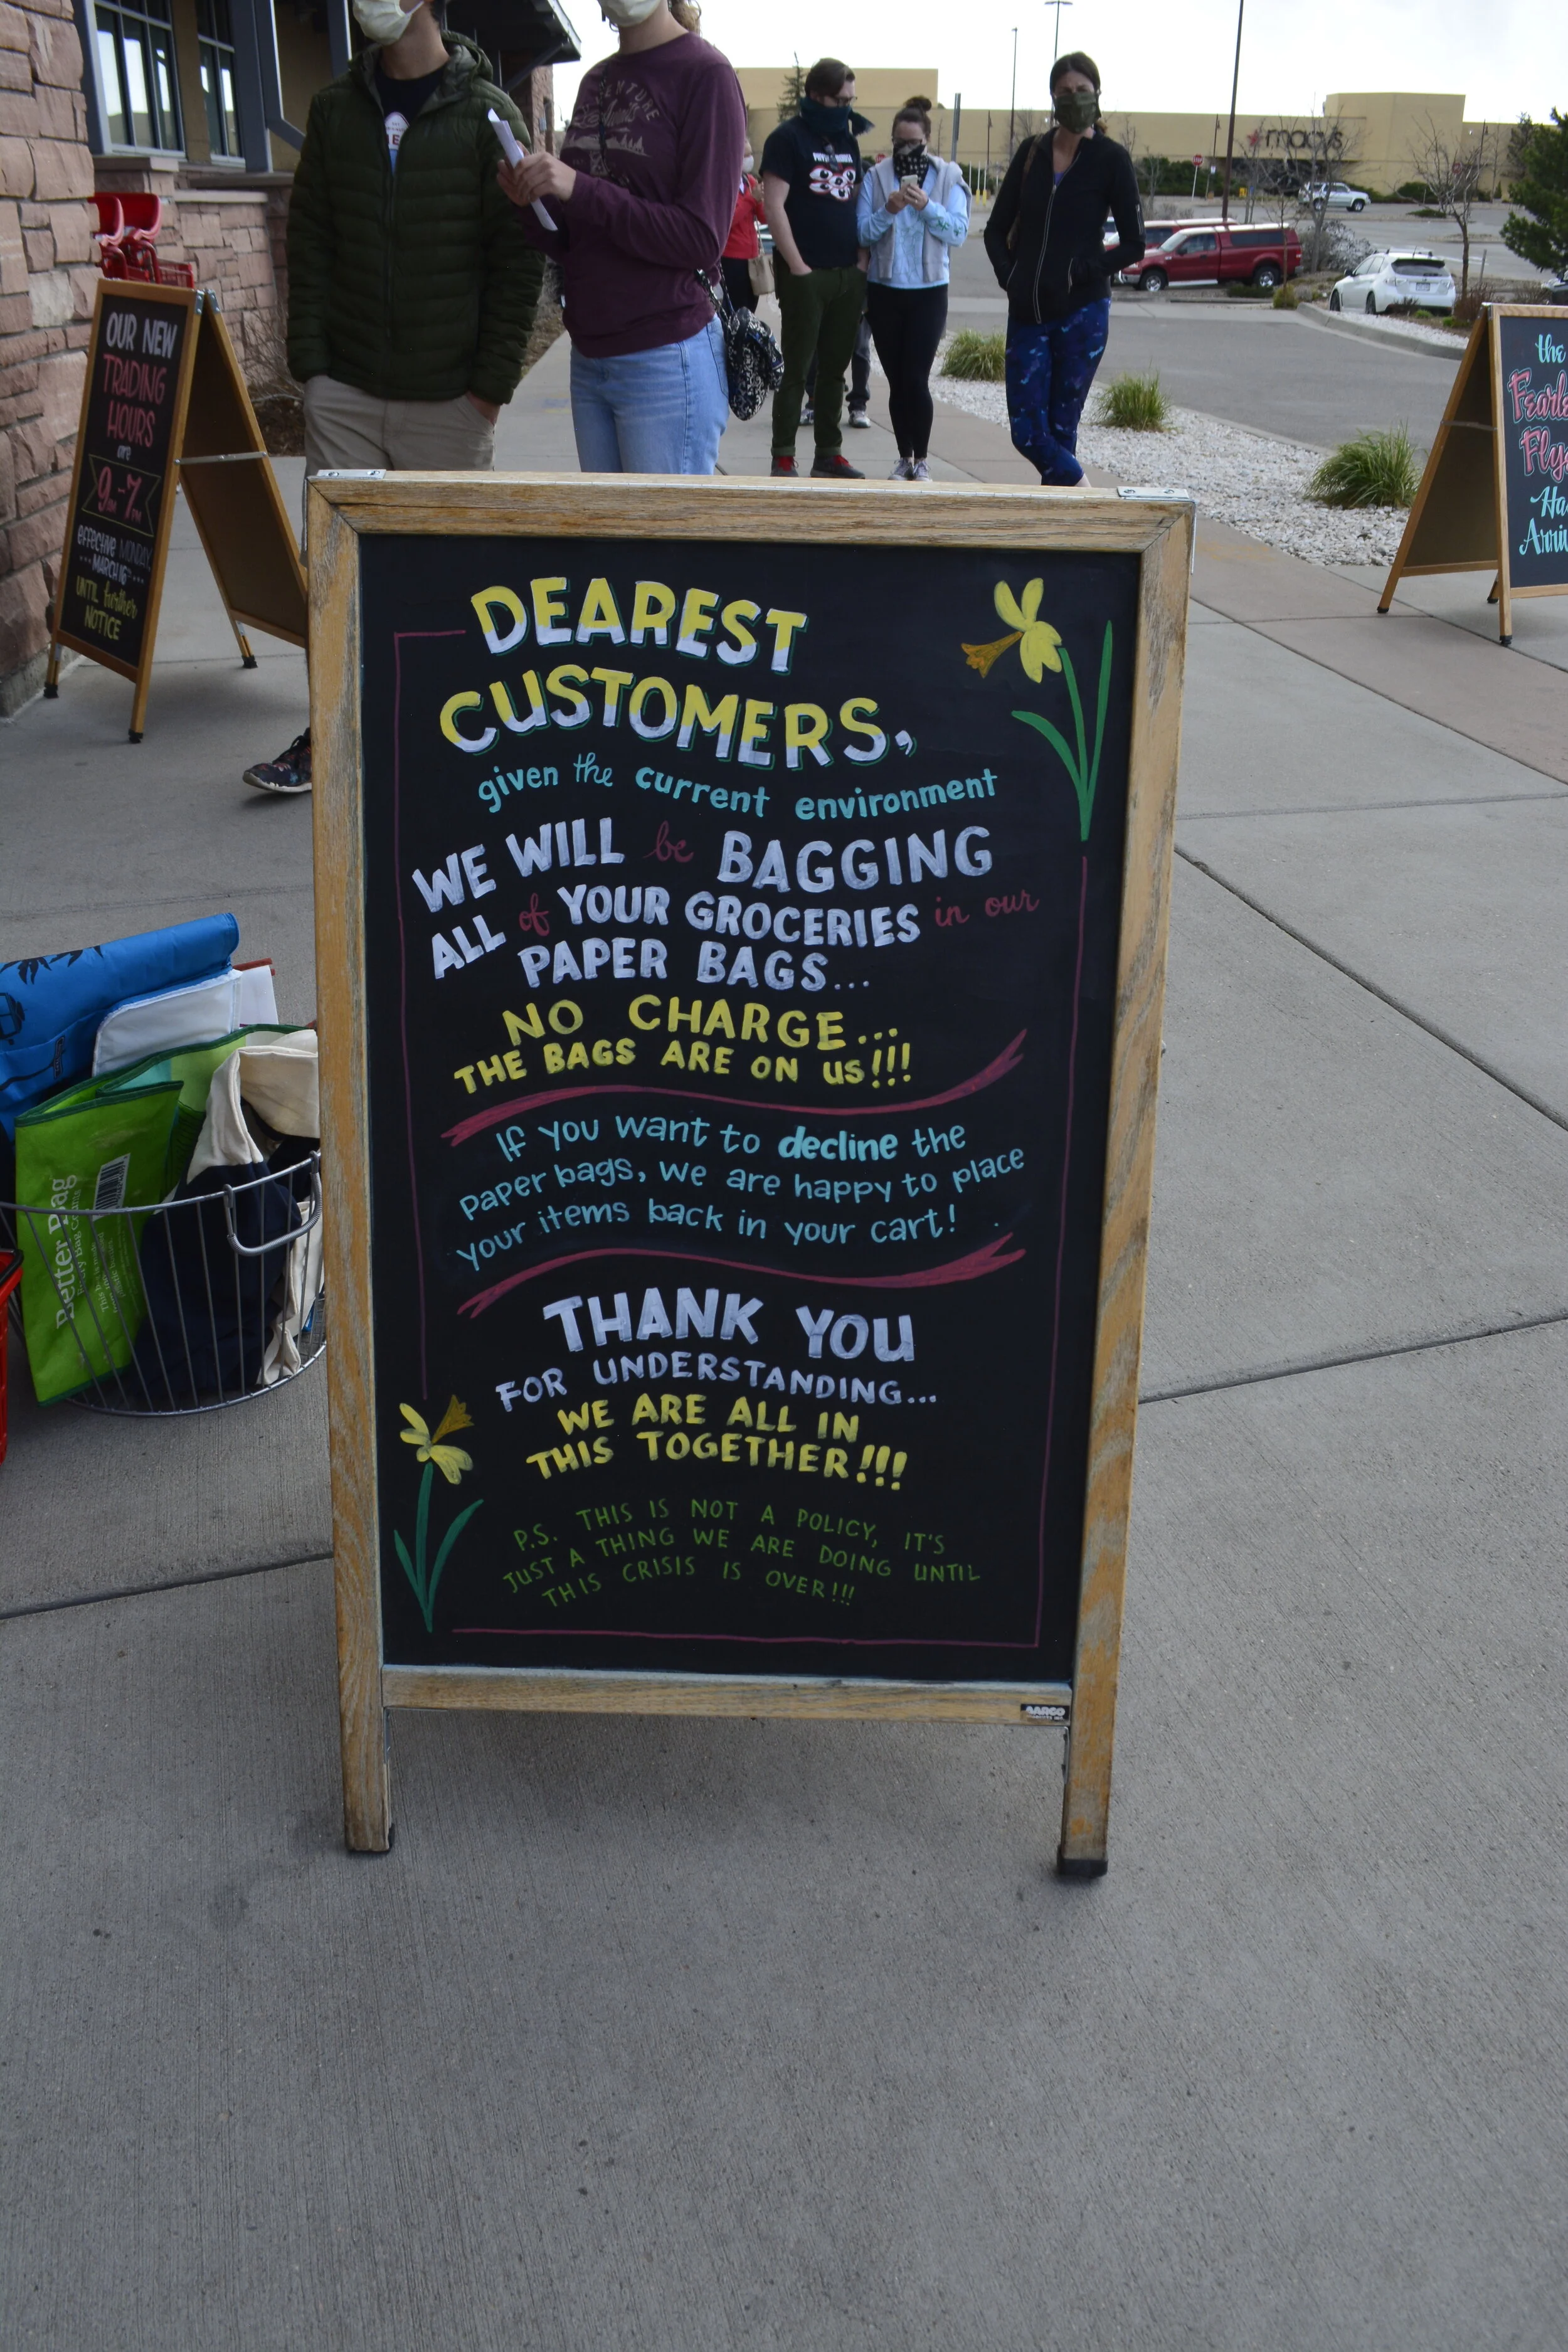 macy's
VENTURE
OUR NEW
TRADING
HOURS
are
9AM-7PM
effective MONDAY,
...MARCH 16TH...
UNTIL further
NOTICE
the
DEAREST
CUSTOMERS,
given the current environment
WE WILL be BAGGING
ALL of YOUR GROCERIES in our
PAPER BAGS...
NO CHARGE...
THE BAGS ARE ON US!!!
If you want to decline the
paper bags, we are happy to place
your items back in your cart!
THANK YOU
FOR UNDERSTANDING...
WE ARE ALL IN
THIS TOGETHER!!!
P.S. THIS IS NOT A POLICY, IT'S
JUST A THING WE ARE DOING UNTIL
THIS CRISIS IS OVER!!!
AARCO
Better Bag